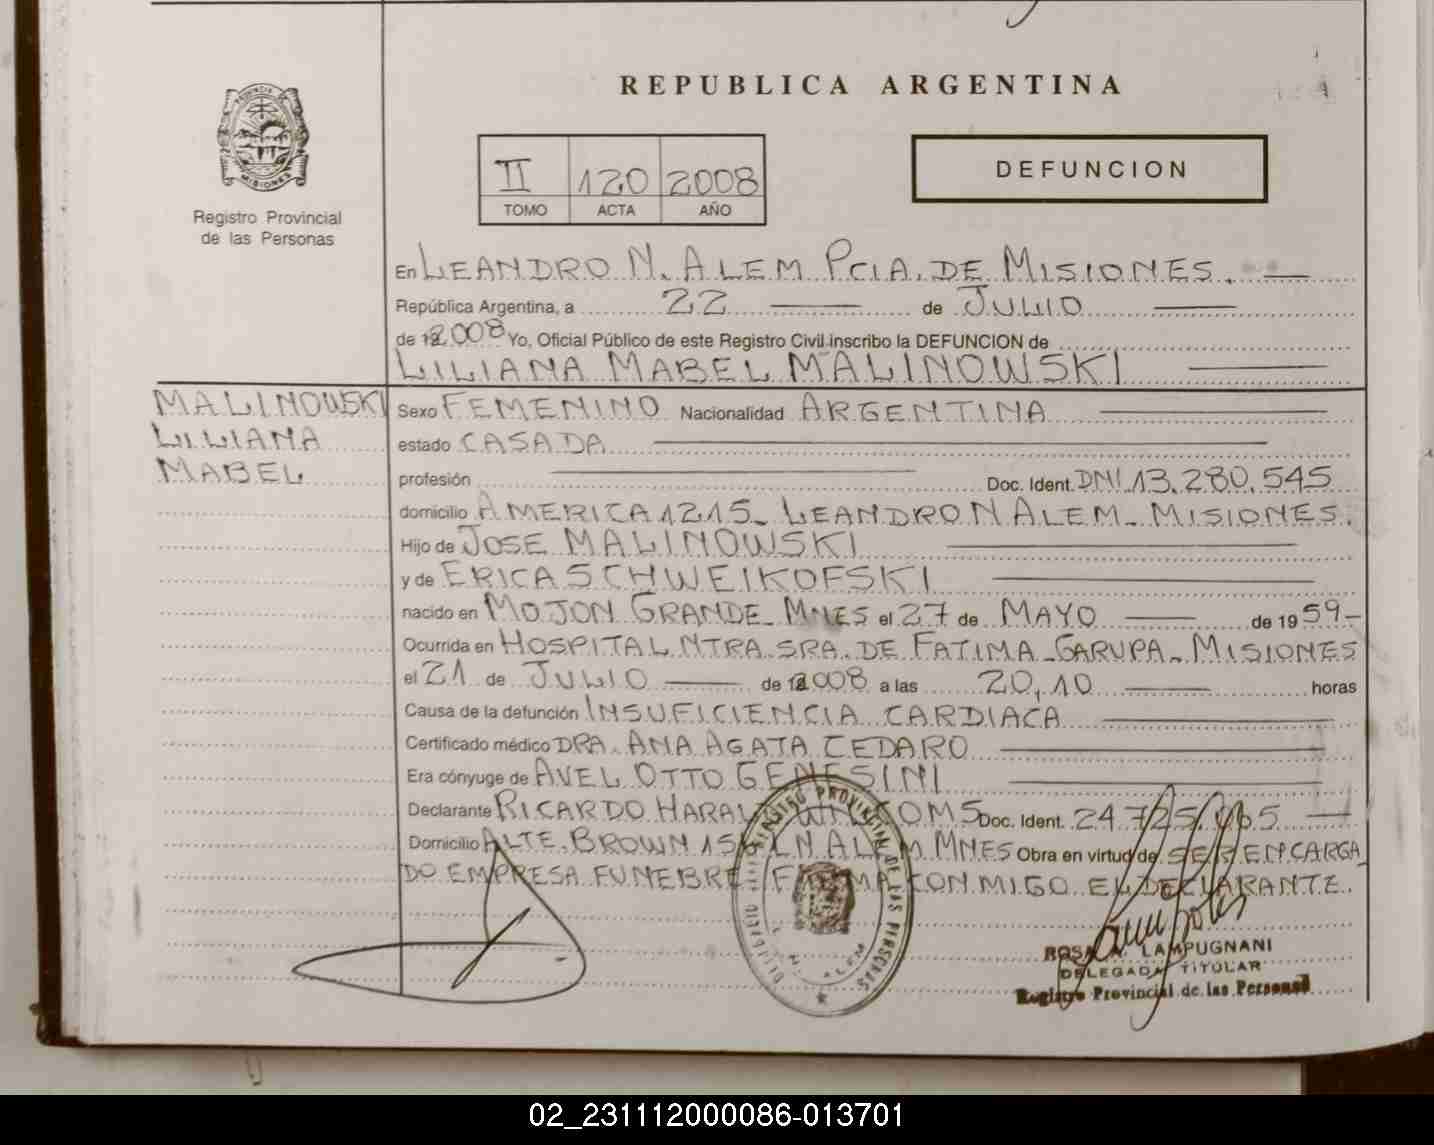 REPUBLICA ARGENTINA
PROVINCIA DE MISIONES
Registro Provincial
de las Personas
II 120 2008
TOMO ACTA AÑO
DEFUNCION
En LEANDRO N. ALEM PCIA. DE MISIONES.
República Argentina, a 22 de JULIO
de 2008 Yo, Oficial Público de este Registro Civil inscribo la DEFUNCION de
LILIANA MABEL MALINOWSKI
MALINOWSKI
LILIANA
MABEL
Sexo FEMENINO Nacionalidad ARGENTINA
estado CASADA
profesión Doc. Ident. DNI 13.280.545
domicilio AMERICA 1215_ LEANDRO N ALEM_ MISIONES.
Hijo de JOSE MALINOWSKI
y de ERICA SCHWEIKOFSKI
nacido en MOJON GRANDE_ MNES el 27 de MAYO de 1959-
Ocurrida en HOSPITAL NTRA. SRA. DE FATIMA_GARUPA_ MISIONES
el 21 de JULIO de 2008 a las 20,10 horas
Causa de la defunción INSUFICIENCIA CARDIACA
Certificado médico DRA. ANA AGATA CEDARO
Era cónyuge de AVEL OTTO GENESINI
Declarante RICARDO Doc. Ident.
Domicilio ALTE. BROWN N ALEM MNES Obra en virtud de SER ENCARGA
DO EMPRESA FUNEBRE FIRMA CONMIGO EL DECLARANTE.
REGISTRO PROVINCIAL DE LAS PERSONAS
ALEM
LAMPUGNANI
DELEGADA TITULAR
Registro Provincial de las Personas
02_231112000086-013701